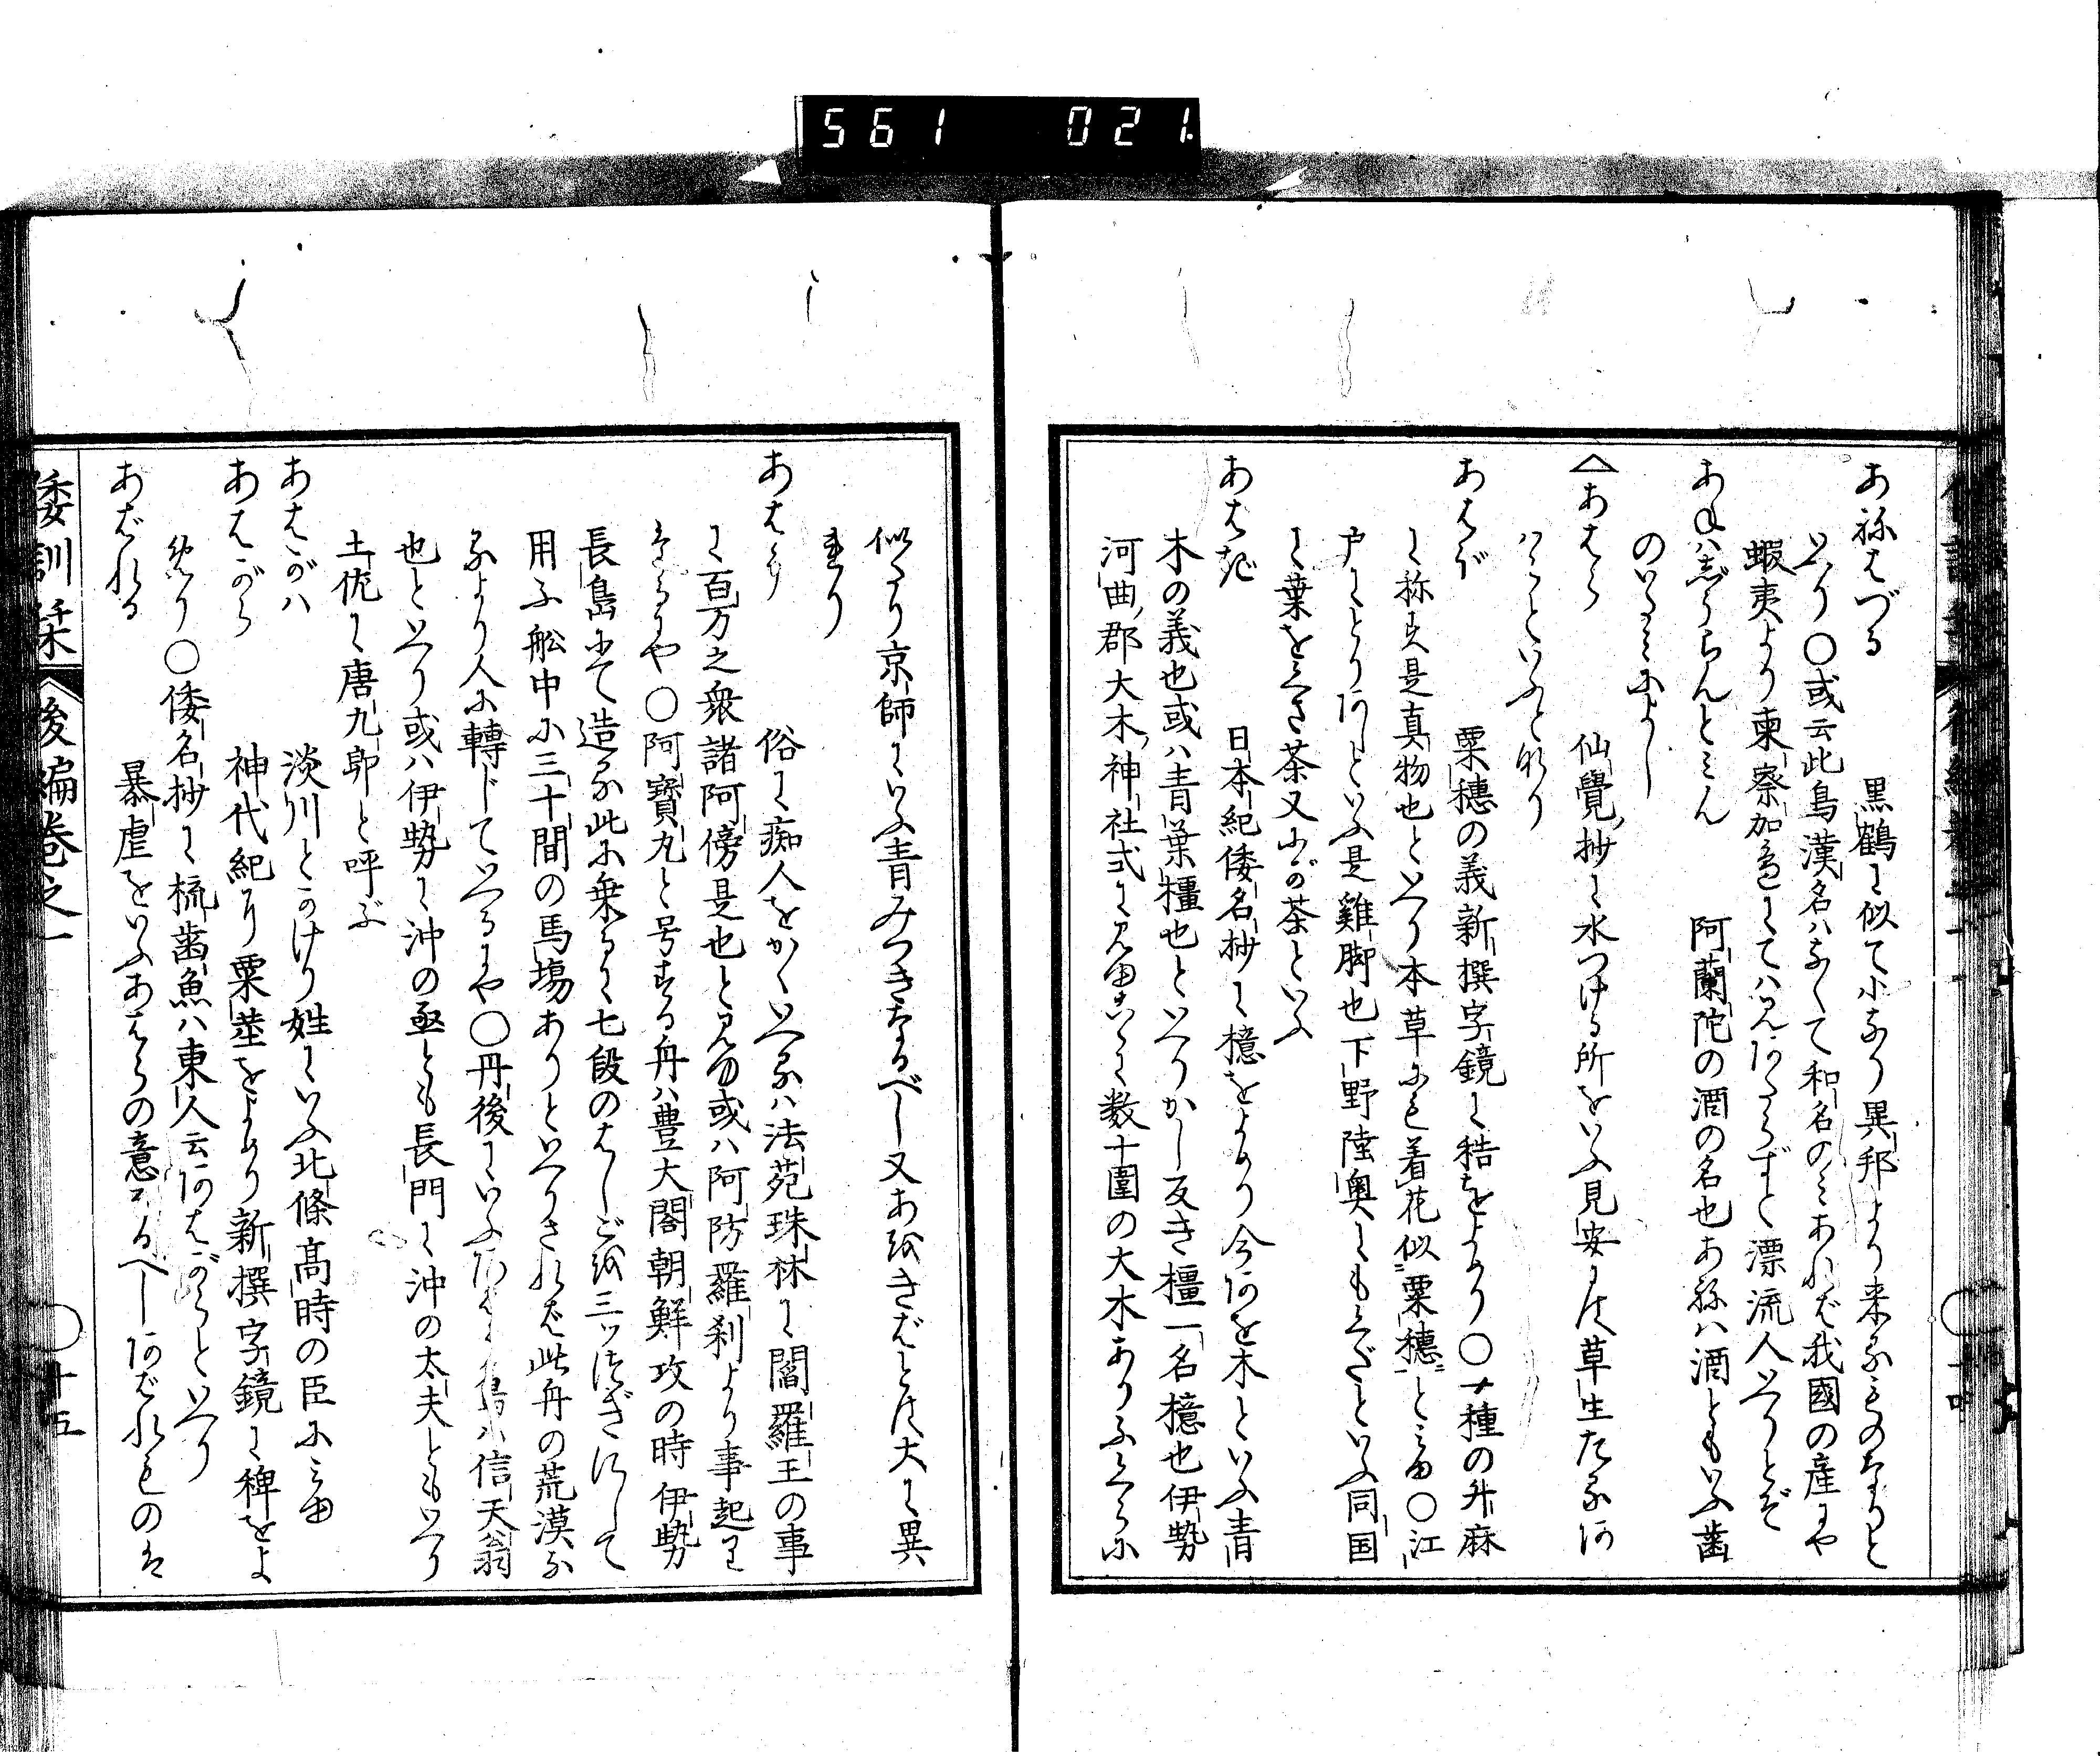 561 021
あねはづる 黒鶴に似て小なり異邦より来るものなりと
いへり〇或云此鳥漢名ハなくて和名のミあれば我國の産にや
蝦夷より東察加邊にてハ見あたらずと漂流人いへりとぞ
あねハぢりらんとミん 阿蘭陀の酒の名也あねハ酒ともいふ歯
のいたミによし
あはら 仙覺抄に水つける所をいふ見安にハ草生たるあ
ハらといふと也
あはぼ 粟穂の義新撰字鏡に秸をよめり〇一種の升麻
に称す是真物也といへり本草にも着花似粟穂とミゆ〇江
戸にとりあしといふ是雞脚也下野陸奥にもミぐさといふ同国
に葉をくさ茶又山が茶といふ
あはき 日本紀倭名抄に檍をよめり今あを木といふ青
木の義也或ハ青葉橿也といへりかし反き橿一名檍也伊勢
河曲郡大木神社式に見ゆ其に数十圍の大木ありふくらに
似たり京師にいふ青みつきなるべし又あをきばとは大に異
なり
あはう 俗に痴人をかくいへるハ法苑珠林に閻羅王の事
に百万之衆諸阿傍是也と見ゆ或ハ阿防羅刹より事起り
たるにや〇阿寳丸と号する舟ハ豊大閤朝鮮攻の時伊勢
長島にて造る此に乗るに七段のはしごを三ツつぎにして
用ふ舩中に三十間の馬場ありといへりされば此舟の荒漠な
るより人に轉じていへるにや〇丹後にいふあはう鳥ハ信天翁
也といへり或ハ伊勢に沖の亟とも長門に沖の太夫ともいへり
土佐に唐九郎と呼ぶ
あはがハ 淡川とかけり姓にいふ北條髙時の臣にミゆ
あはがら 神代紀に粟莖をよめり新撰字鏡に稗をよ
めり〇倭名抄に梳齒魚ハ東人云あはがらといへり
あばれる 暴虐をいふあらの意なるべしあばれものは
倭訓栞 後編巻之一 〇十五